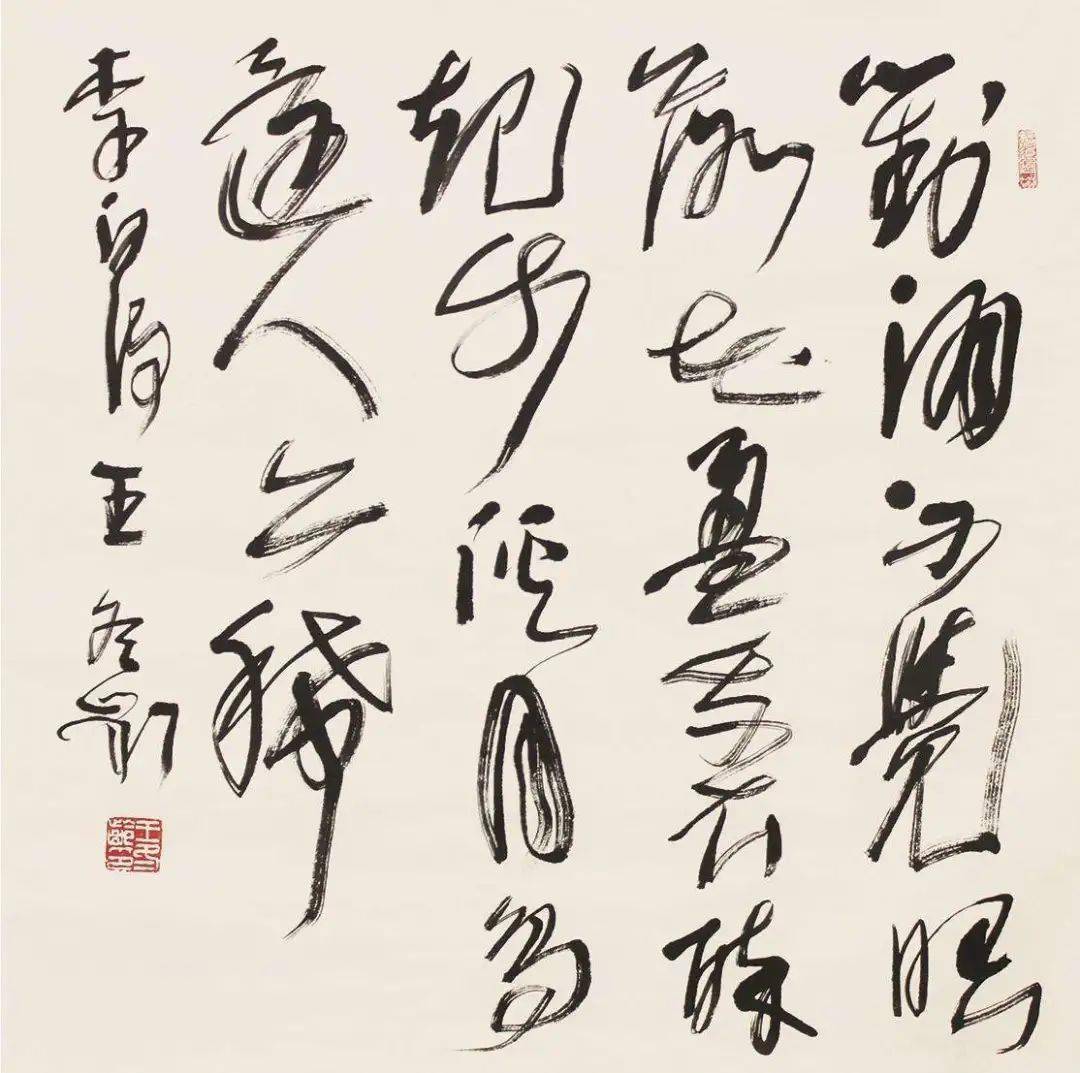 對酒不覺暝
落花盈我衣醉
起步溪月鳥
還人亦稀
李白詩 王冬齡